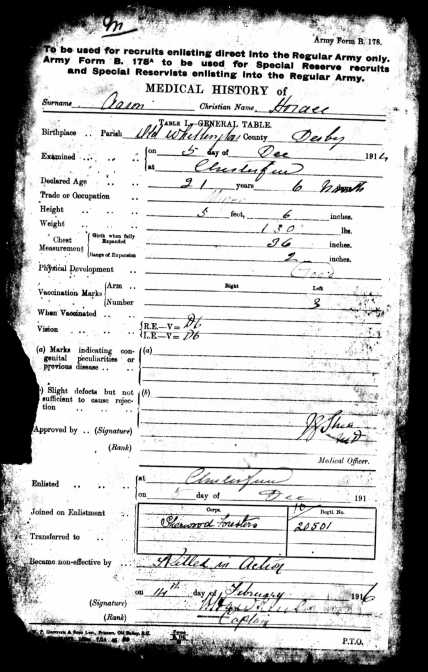 Army Form B. 178.
To be used for recruits enlisting direct into the Regular Army only.
Army Form B. 178A to be used for Special Reserve recruits
and Special Reservists enlisting into the Regular Army.
MEDICAL HISTORY of
Surname Christian Name Horace
TABLE I.—GENERAL TABLE.
Birthplace .. Parish Old Whittington County Derby
Examined .. on 5 day of Dec 1914
at Chesterfield
Declared Age .. 21 years 6 Months
Trade or Occupation
Height 5 feet, 6 inches.
Weight 130 lbs.
Chest Measurement Girth when fully Expanded 36 inches.
Range of Expansion 2 inches.
Physical Development Good
Vaccination Marks Arm .. Right Left
Number 3
When Vaccinated ..
Vision R.E.—V= D6
L.E.—V= D6
(a) Marks indicating con- (a)
genital peculiarities or
previous disease ..
) Slight defects but not (b)
sufficient to cause rejec-
tion
Approved by .. (Signature)
(Rank)
Medical Officer.
Enlisted at Chesterfield
on day of Dec 191
Corps. Regtl. No.
Joined on Enlistment Sherwood Foresters 20501
Transferred to
Became non-effective by Killed in Action
on 14th day of February 1916
(Signature)
(Rank) Captain
P.T.O.